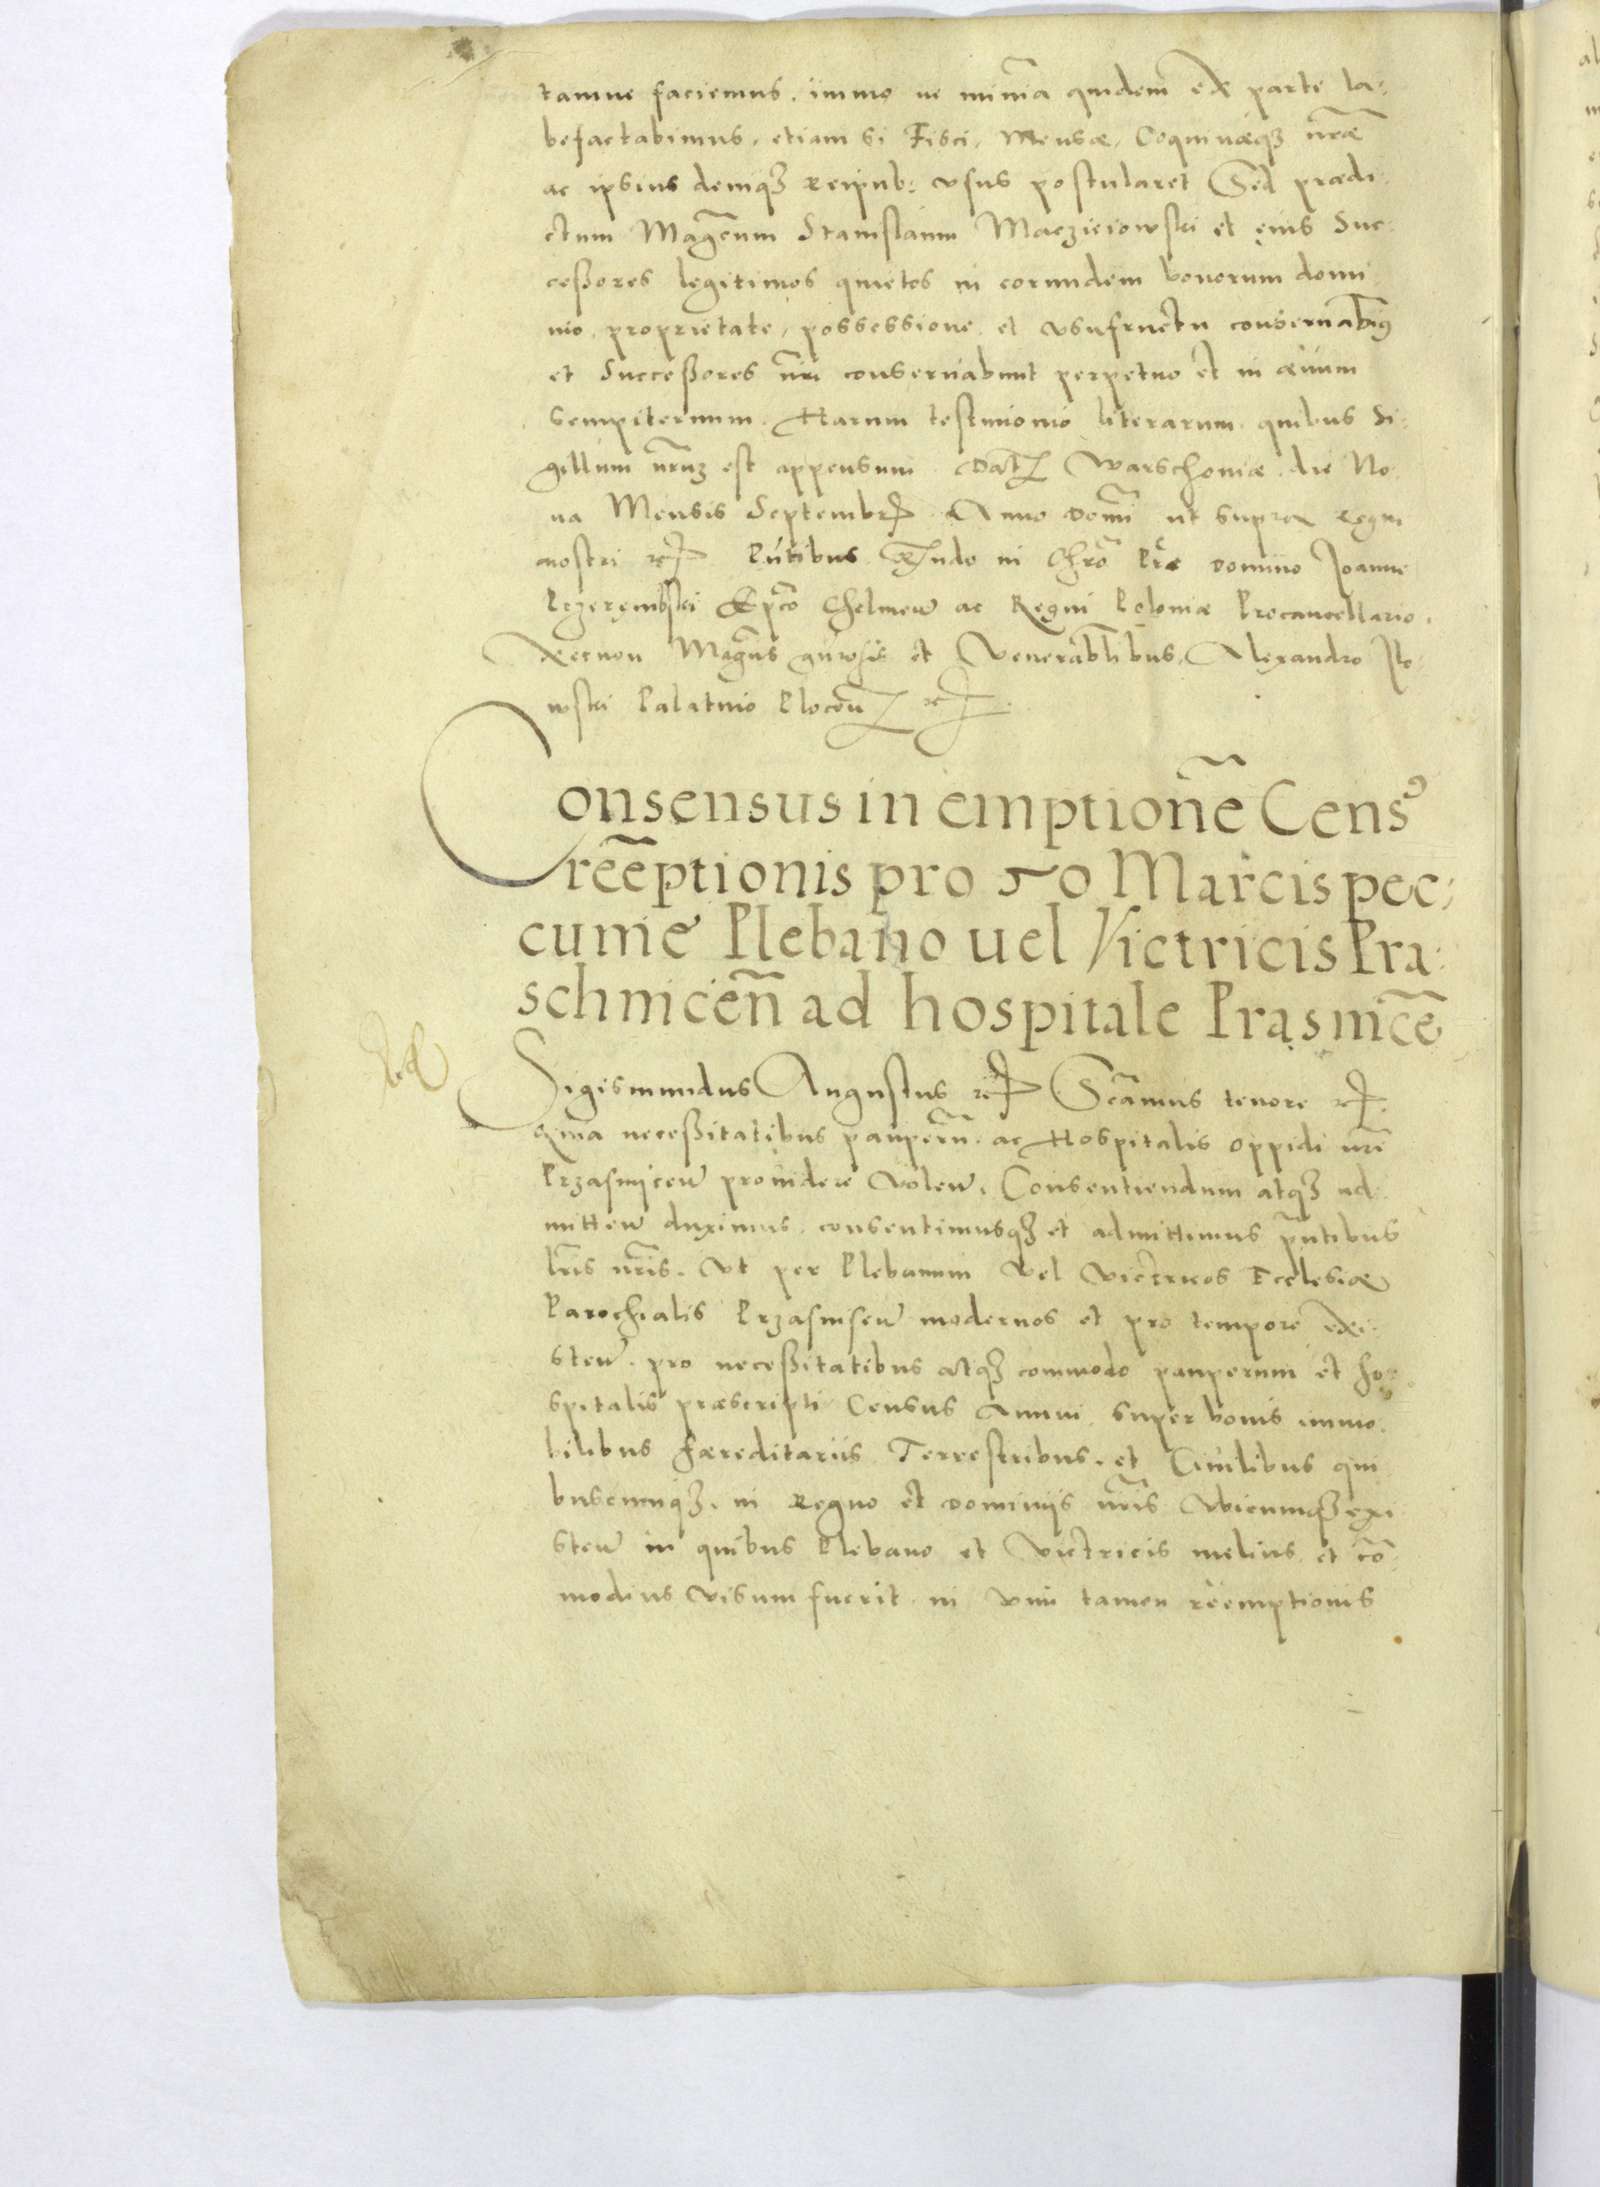 tamue faciemus. immo ne minĩa quidem ex parte la-
befactabimus, etiam si Fisci, Mensæ, Coquinæqʒ nr̃æ
ac ipsius deniqʒ Reipub: usus postularet Sed prædi
ctum Mag̃cum Stanislaum Maczieiowski et eius Suc-
ceßores legitimos quietos in eorundem bonorum domi
nio, proprietate, possessione et usufructu conseruabim9
et Succeßores nr̃i conseruabunt perpetuo et in æuum
sempiternum. Harum testimonio literarum quibus Si-
gillum nr̃uʒ est appensum. Dat̃ Warschouiæ. die No-
na Mensis Septembr̃ Anno Domi ut supra Regni
nostri etc̃ Pñtibus Rñdo in Chr̃o Pr̃e Domino Joanne
Przerembski Ep̃co Chelmeñ ac Regni Poloniæ Procancellario.
Necnon Mag̃cis gñosis et Venerabilibus, Alexandro Ilo-
wski Palatino Ploceñ etc̃.
Consensus in emptionẽ Cens9
reẽptionis pro 50 Marcis pec-
cunie Plebano uel Victricis Pra-
schniceñ ad hospitale Prasnicẽ
Sigismundus Augustus etc̃ Scamus tenore etc̃.
Quia neceßitatibus pauperũ ac Hospitalis oppidi nr̃i
Przasniceñ prouidere Voleñ, Consentiendum atqʒ ad
mitteñ duximus. consentimusqʒ et admittimus pñtibus
lr̃is nr̃is. Vt per Plebanum Vel Victricos Ecclesiæ
Parochialis Przasnseñ modernos et pro tempore exi-
steñ. pro neceßitatibus atqʒ commodo pauperum et ho-
spitalis præscripti Census Annui super bonis immo-
bilibus hæreditariis Terrestribus, et Ciuilibus qui
buscunqʒ, in Regno et Dominijs nr̃is Vbicunqʒ exi
steñ in quibus Plebano et Victricis melius et cõ-
modius Visum fuerit in Vim tamen reemptionis